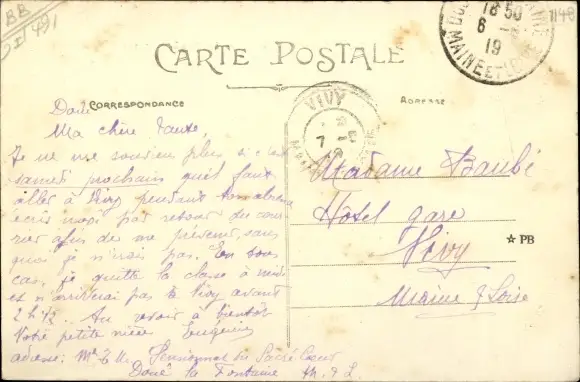 BB
491
1148
18 30
6 -
19
MAINE ET LOIRE
CARTE POSTALE
CORRESPONDANCE
ADRESSE
VIVY
7
Doué
Ma chère Tante,
Je ne me souviens plus si c'est
samedi prochain qu'il faut
aller à Vivy pendant ton absence
écris moi par retour du cour
rier afin de me prévenir, sans
quoi je n'irais pas. En tous
cas, je quitte la classe à midi
et n'arriverai pas à Vivy avant
2 h 1/2. Au revoir à bientôt
Votre petite nièce Eugénie
adresse: Melle E. M. Pensionnat du Sacré Coeur
Doué la Fontaine M. & L.
Madame Baubé
Hôtel gare
Vivy
Maine & Loire
☆ PB